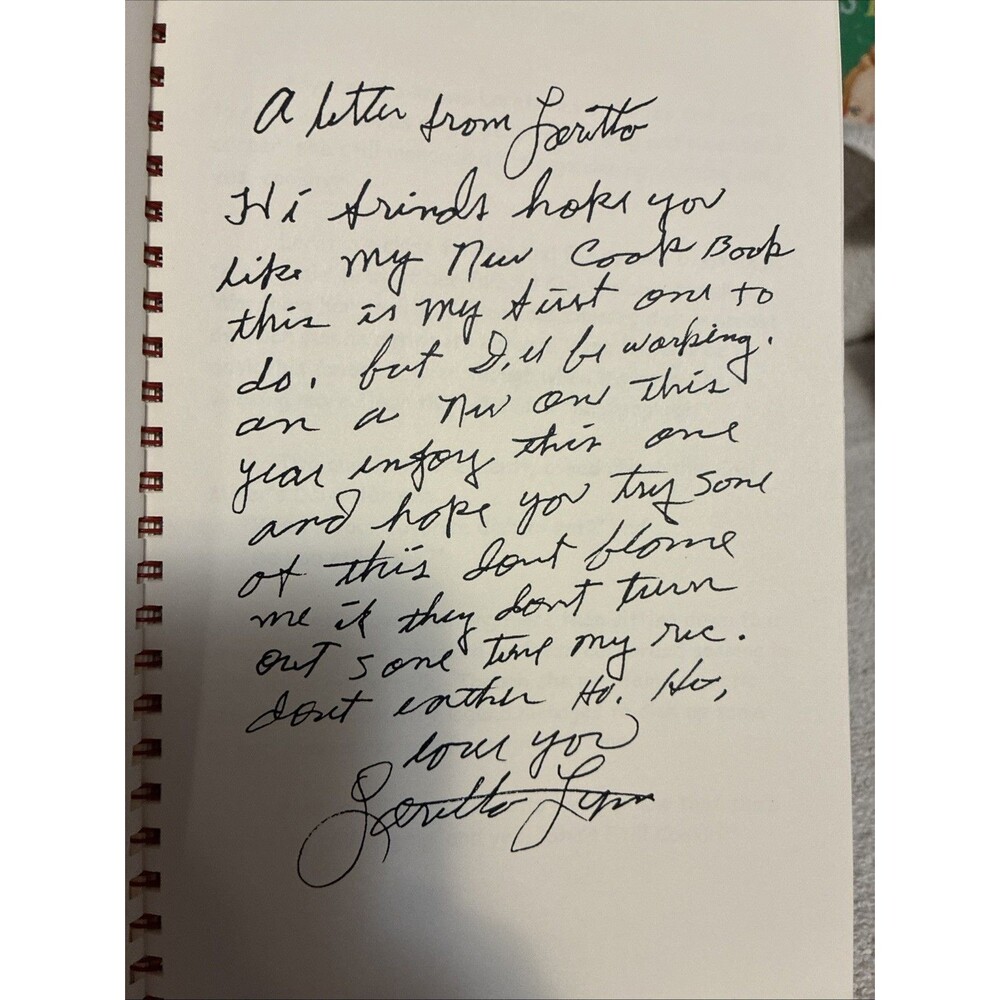 A letter from Loretta
Hi frinds hope you
like my New Cook Book
this is my first one to
do. but I,ll be working.
on a New one this
year enjoy this one
and hope you try some
of this dont blame
me if they dont turn
out some time my rec.
dont eather Ho. Ho,
love you
Loretta Lynn